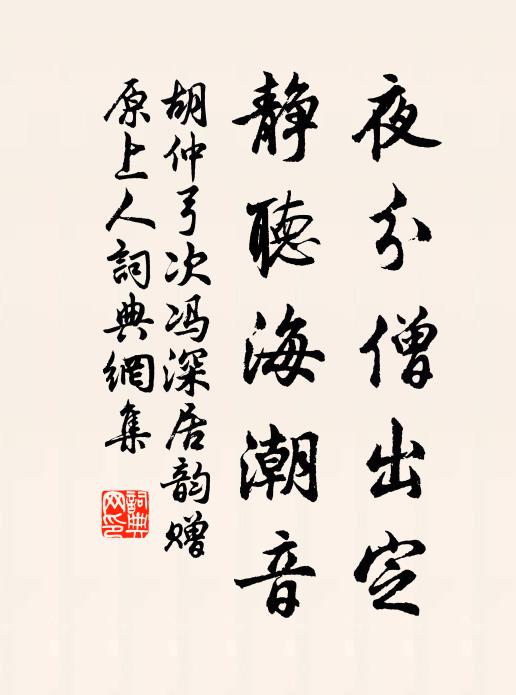 夜分僧出定
静聽海潮音
胡仲弓次冯深居韵赠
原上人詞典網集
詞典网印